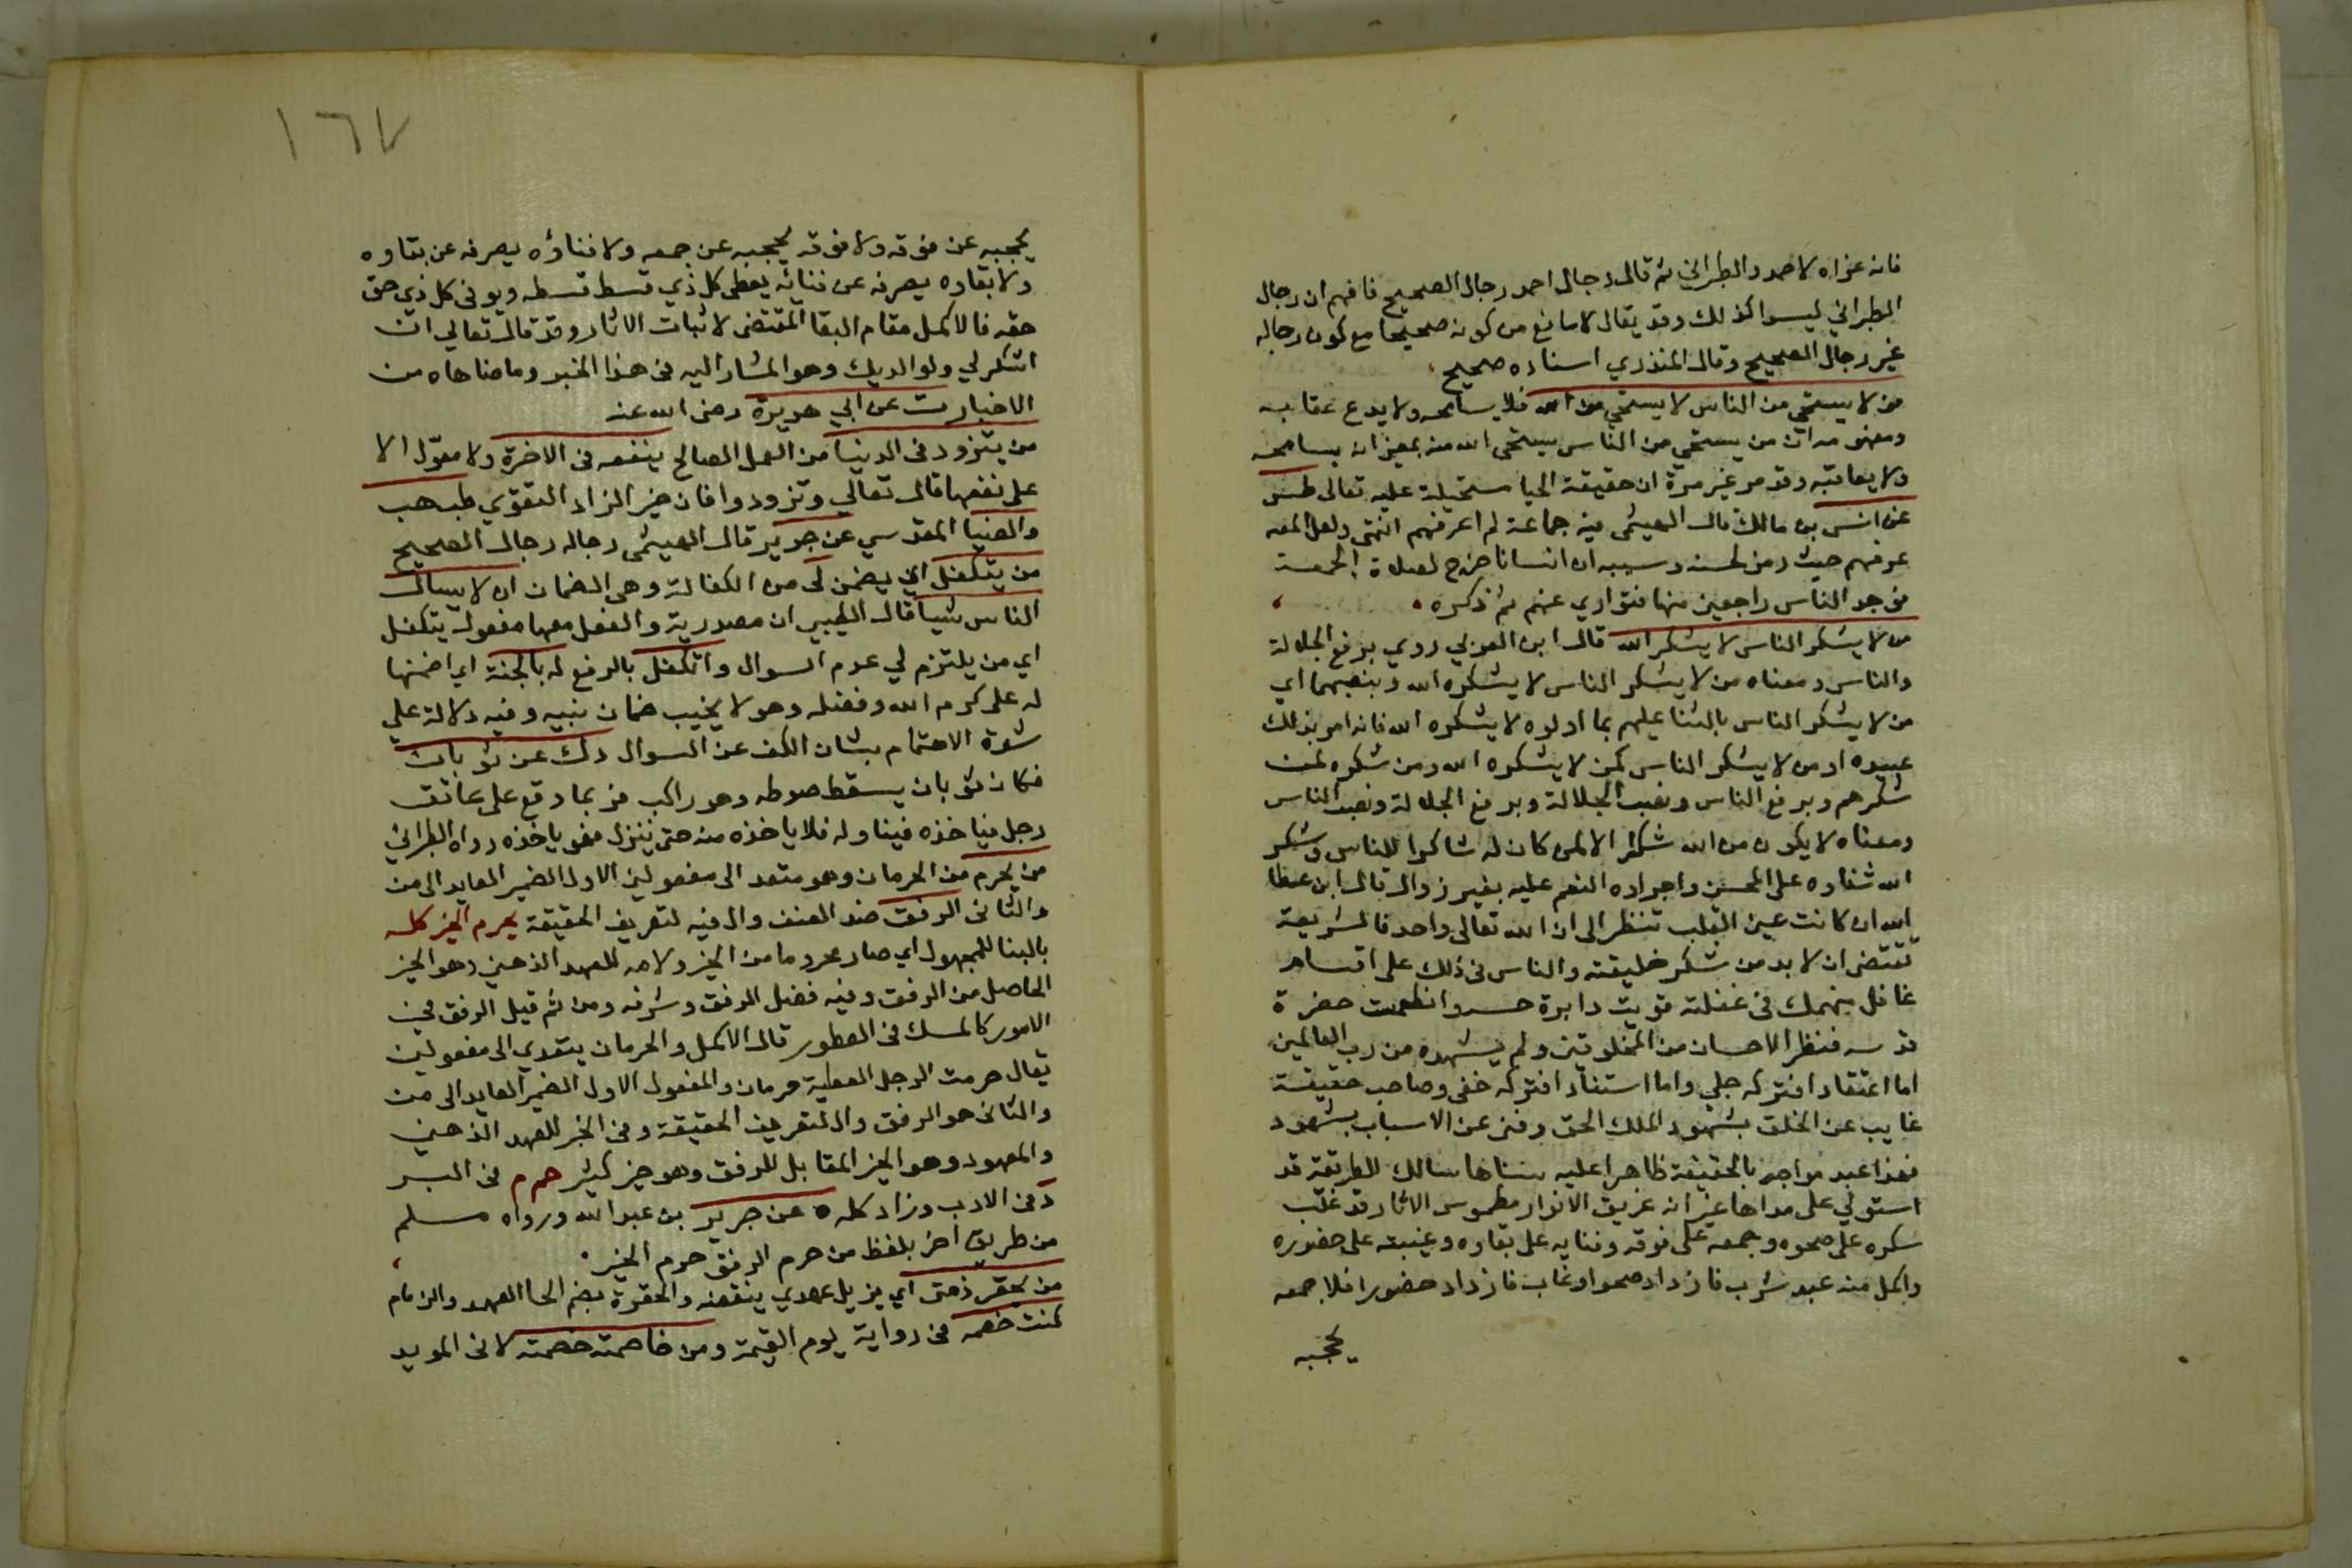 فانه عزاه لاحمد والطبراني ثم قال رجال احمد رجال الصحيح فافهم ان رجال
الطبراني ليسوا كذلك وقد يقال لا مانع من كونه صحيحا مع كون رجاله
غير رجال الصحيح وقال المنذري اسناده صحيح
من لا يستحي من الناس لا يستحي من الله فلا يسامحه ولا يدع عقابه
ومفهومه ان من يستحي من الناس يستحي الله منه بمعني انه يسامحه
ولا يعاقبه وقد مر غير مرة ان حقيقة الحيا مستحيلة عليه تعالى طس
عن انس بن مالك قال الهيثمي فيه جماعة لم اعرفهم انتهى ولعل المص
عرفهم حيث رمز لحسنه وسببه ان انسانا خرج لصلاة الجمعة
فوجد الناس راجعين منها فتواري عنهم ثم ذكره
من لا يشكر الناس لا يشكر الله قال ابن العربي روي برفع الجلالة
والناس ومعناه من لا يشكر الناس لا يشكره الله وبنصبهما اي
من لا يشكر الناس بالثنا عليهم بما اولوه لا يشكره الله فانه امر بذلك
عبيده او من لا يشكر الناس كمن لا يشكره الله ومن شكره كمن
شكرهم وبرفع الناس ونصب الجلالة وبرفع الجلالة ونصب الناس
ومعناه لا يكون من الله شكر الا لمن كان له شاكرا للناس وشكر
الله ثناوه على المحسن واجراده النعم عليه بغير زوال قال ابن عطا
الله ان كانت عين القلب تنظر الى ان الله تعالى واحد فالشريعة
تقتضي ان لا بد من شكر خليقته والناس في ذلك على اقسام
غافل منهمك في غفلته قويت دايرة حسه وانطمست حضرة
قدسه فنظر الاحسان من المخلوقين ولم يشهده من رب العالمين
اما اعتقادا فشركه جلي واما استنادا فشركه خفي وصاحب حقيقة
غايب عن الخلق بشهود الملك الحق وفني عن الاسباب بشهود
فهذا عبد مواجه بالحقيقة ظاهرا عليه سناها سالك للطريقة قد
استولي على مداها غير انه غريق الانوار مطموس الاثار قد غلب
سكره على صحوه وجمعه على فرقه وفنايه على بقاوه وغيبته على حضوره
واكمل منه عبد شرب فازداد صحوا وغاب فازداد حضورا فلا جمعه
يحجبه
١٦٧
يحجبه عن فرقه ولا فرقه يحجبه عن جمعه ولا فناؤه يصرفه عن بقاوه
ولا بقاوه يصرفه عن فنائه يعطي كل ذي قسط قسطه ويوفي كل ذي حق
حقه فالاكمل مقام البقا المقتضى لاثبات الاثار وقد قال تعالي ان
اشكر لي ولوالديك وهو المشار اليه في هذا الخبر وما ضاهاه من
الاخبار ت عن ابي هريرة رضى الله عنه
من يتزود في الدنيا من العمل الصالح ينفعه في الاخرة ولا معوّل الا
على نفعها قال تعالي وتزودوا فان خير الزاد التقوي طب هب
والضيا المقدسي عن جرير قال الهيثمي رجاله رجال الصحيح
من يتكفل اي يضمن لى من الكفالة وهى الضمان ان لا يسال
الناس شيا قال الطيبي ان مصدرية والفعل معها مفعول يتكفل
اي من يلتزم لي عدم السوال واتكفل بالرفع له بالجنة اي اضمنها
له على كرم الله وفضله وهو لا يخيب ضمان نبيه وفيه دلالة علي
شدة الاهتمام بشان الكف عن السوال دك عن ثوبان
فكان ثوبان يسقط صوطه وهو راكب فربما وقع على عاتق
رجل فياخذه فيناوله فلا ياخذه منه حتى ينزل فهو ياخذه رواه الطبراني
من يحرم من الحرمان وهو متعد الى مفعولين الاول الضمير العايد الى من
والثانى الرفق ضد العنف وال فيه لتعريف الحقيقة يحرم الخير كله
بالبنا للمجهول اي صار محروما من الخير ولامه للعهد الذهني وهو الخير
الحاصل من الرفق وفيه فضل الرفق وشرفه ومن ثم قيل الرفق في
الامور كالمسك في العطور قال الاكمل والحرمان يتعدي الى مفعولين
يقال حرمت الرجل العطية حرمان والمفعول الاول الضمير العايد الى من
والثاني هو الرفق وال لتعريف الحقيقة وفي الخير للعهد الذهني
والمعهود وهو الخير المقابل للرفق وهو خير كثير حم م في البر
د في الادب وزاد كله ه عن جرير بن عبد الله ورواه مسلم
من طريق اخر بلفظ من حرم الرفق حرم الخير
من يحقر ذمتى اي يزيل عهدي ينقضه والحقرة بضم الحا العهد والزمام
كنت خصمه في رواية يوم القيمة ومن خاصمته خصمته لانى المويد